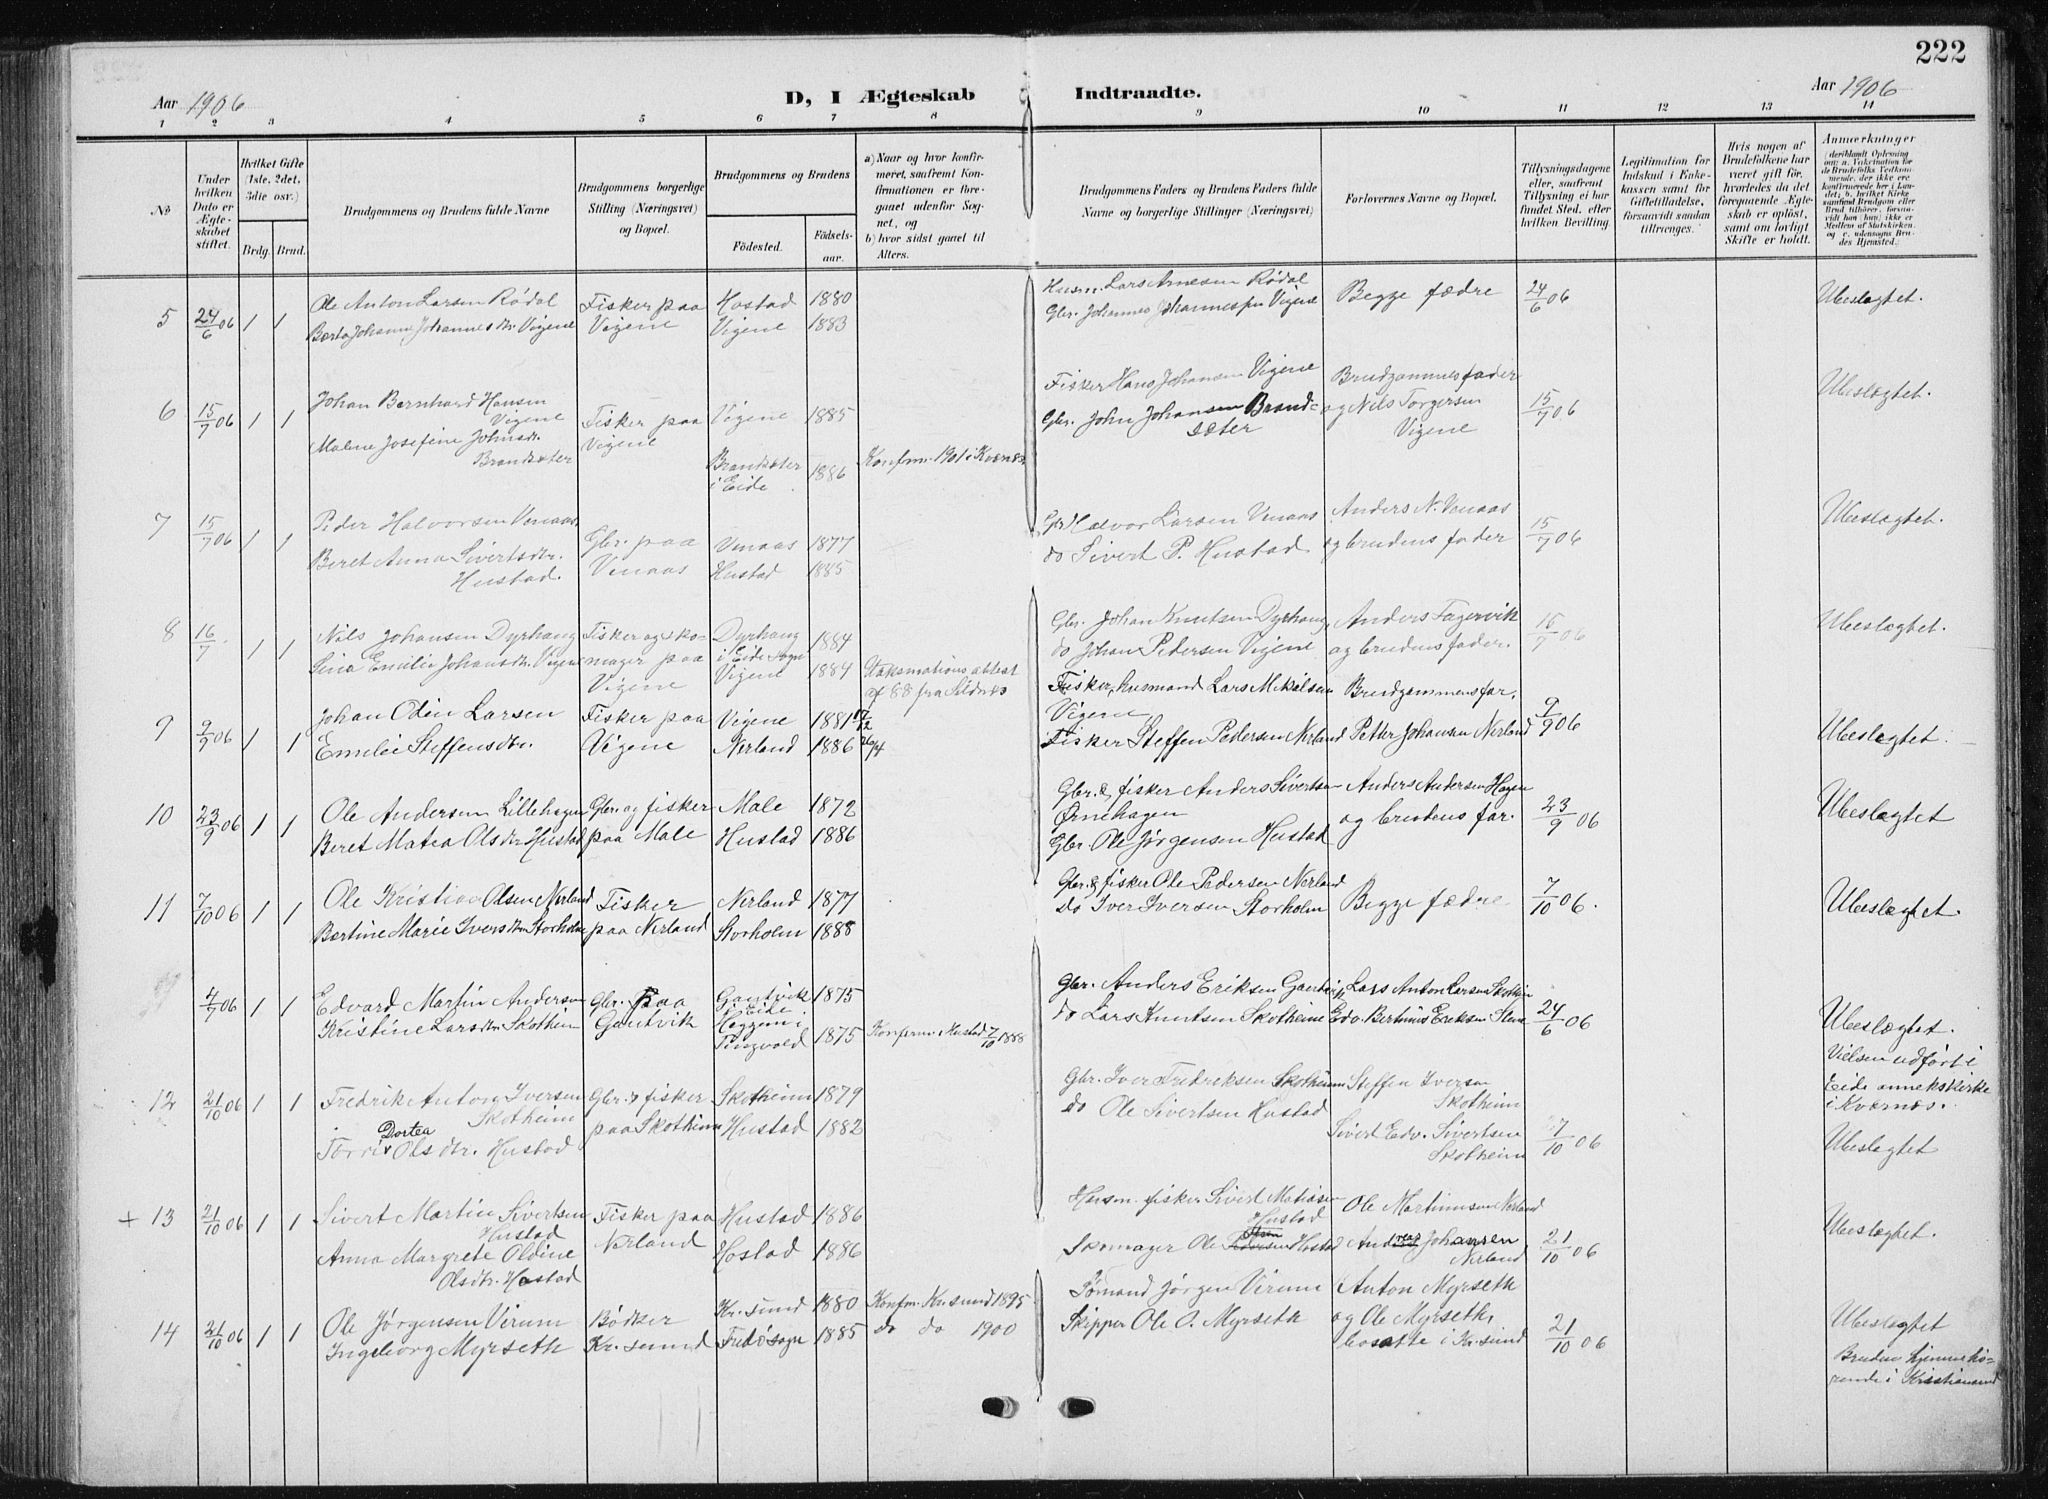 222
Aar 1906
D, I Ægteskab Indtraadte.
Aar 1906
1 2 3 4 5 6 7 8 9 10 11 12 13 14
№
Under hvilken Dato er Ægteskabet stiftet.
Hvilket Gifte (1ste, 2det, 3die osv.)
Brdg. Brud.
Brudgommens og Brudens fulde Navne
Brudgommens borgerlige Stilling (Næringsvei) og Bopæl.
Brudgommens og Brudens
Fødested. Fødsels-aar.
a) Naar og hvor konfirmeret, saafremt Konfirmationen er foregaaet udenfor Sognet, og
b) hvor sidst gaaet til Alters.
Brudgommens Faders og Brudens Faders fulde Navne og borgerlige Stillinger (Næringsvei)
Forlovernes Navne og Bopæl.
Tillysningsdagene eller, saafremt Tillysning ei har fundet Sted, efter hvilken Bevilling.
Legitimation for Indskud i Enkekassen samt for Giftetilladelse, forsaavidt saadan tiltrænges.
Hvis nogen af Brudefolkene har været gift før, hvorledes da det foregaaende Ægteskab er opløst, samt om lovligt Skifte er holdt.
Anmærkninger
5 24/6 06 1 1 Ole Anton Larsen Rødal Fisker paa Hostad 1880 Husm. Lars Arnesen Rødal Begge fædre 24/6 06 Ubeslægtet.
Johannesdtr. Vigene Vigene Vigene 1883 Gbr. Johannes Vigene
6 15/7 06 1 1 Johan Bernhard Hansen Fisker Hans Johansen Vigene Brudgommens fader Ubeslægtet.
Vigene Fisker paa Vigene 1885 Gbr. John Johansen Brand- og Nils Torgersen 15/7 06
Malene Josefine Johnsdtr. Vigene sæter Vigene
Brandsæter Brandsæter 1886 Konfrm. 1901 i Kvernes
i Eide
7 15/7 06 1 1 Peder Halvorsen Venaas Gbr. paa Venaas 1877 Gbr. Halvor Larsen Venaas Anders N. Venaas 15/7 06 Ubeslægtet.
Beret Anna Sivertsdtr. Venaas Hustad 1885 do Sivert P. Hustad og brudens fader
Hustad.
8 16/7 1 1 Nils Johansen Dyrhaug Fisker og sko- Dyrhaug 1884 Gbr. Johan Knutsen Dyrhaug Anders Fagervik 15/7 06 Ubeslægtet.
Sina Emilie Johansdtr. Vigene mager paa i Eide Sogn
Vigene Vigene 1884 do Johan Pedersen Vigene og brudens fader.
af 88 fra
9 9/9 06 1 1 Johan Odin Larsen Fisker paa Vigene 1881 Fisker, husmand Lars Mikalsen Brudgommens far, 9/9 06 Ubeslægtet.
Vigene
Emelie Steffensdtr. Vigene Nerland 1886 Fisker Steffen Pedersen Nerland Petter Johansen Nerland
10 23/9 06 1 1 Ole Andersen Lillehagen Gbr. og fisker Male 1872 Gbr. & fisker Anders Sivertsen Anders Andersen Hagen 23/9 06 Ubeslægtet
Ørnehagen og brudens far.
Beret Matea Olsdtr Hustad paa Male Hustad 1886 Gbr. Ole Jørgensen Hustad
11 7/10 06 1 1 Ole Kristian Olsen Nerland Fisker Nerland 1877 Gbr. & fisker Ole Pedersen Nerland Begge fædre 7/10 06. Ubeslægtet.
Bertine Marie Iversdtr. Storholm paa Nerland Storholm 1888 do Iver Iversen Storholm
4/7 06 1 1 Edvard Martin Andersen Gbr. paa Gautvik 1875 Gbr. Anders Eriksen Gautvik Lars Anton Larsen Skotheim 24/6 06 Ubeslægtet.
i Eide.
Kristine Larsdtr. Skotheim Gautvik Heggem i Tingvold 1875 Konferm. i Hustad 7/10 1888 do Lars Knutsen Skotheim Edv. Bertinus Eriksen
Vielsen udført i
Eide annekskirke
i Kvernes.
12 21/10 06 1 1 Fredrik Anton Iversen Gbr. & fisker Skotheim 1879 Gbr. Iver Fredriksen Skotheim Steffen Iversen
Skotheim Skotheim
Dortea
Olsdtr. Hustad paa Skotheim Hustad 1882 do Ole Sivertsen Hustad Sivert Edv. Sivertsen 7/10 06 Ubeslægtet
Skotheim
+ 13 21/10 06 1 1 Sivert Martin Sivertsen Fisker paa Hustad 1886 Husm. fisker Sivert Matiasen Ole Martinusen Nerland 21/10 06 Ubeslægtet.
Hustad Nerland Hustad
Anna Margrete Oldine Hostad 1886 Skomager Ole Hostad Andreas Johansen
Olsdtr. Hostad Nerland
14 21/10 06 1 1 Ole Jørgensen Virum Bødker Kr. sund 1880 Konfrm. Kr. sund 1895 Sømand Jørgen Virum Anton Myrseth 21/10 06 Ubeslægtet
Ingeborg Myrseth Kr. sund Fredøsogn 1885 do do 1900 Skipper Ole O. Myrseth og Ole Myrseth,
bosatte i Kr. sund
Bruden hjemmehø-
rende i Kristiansund